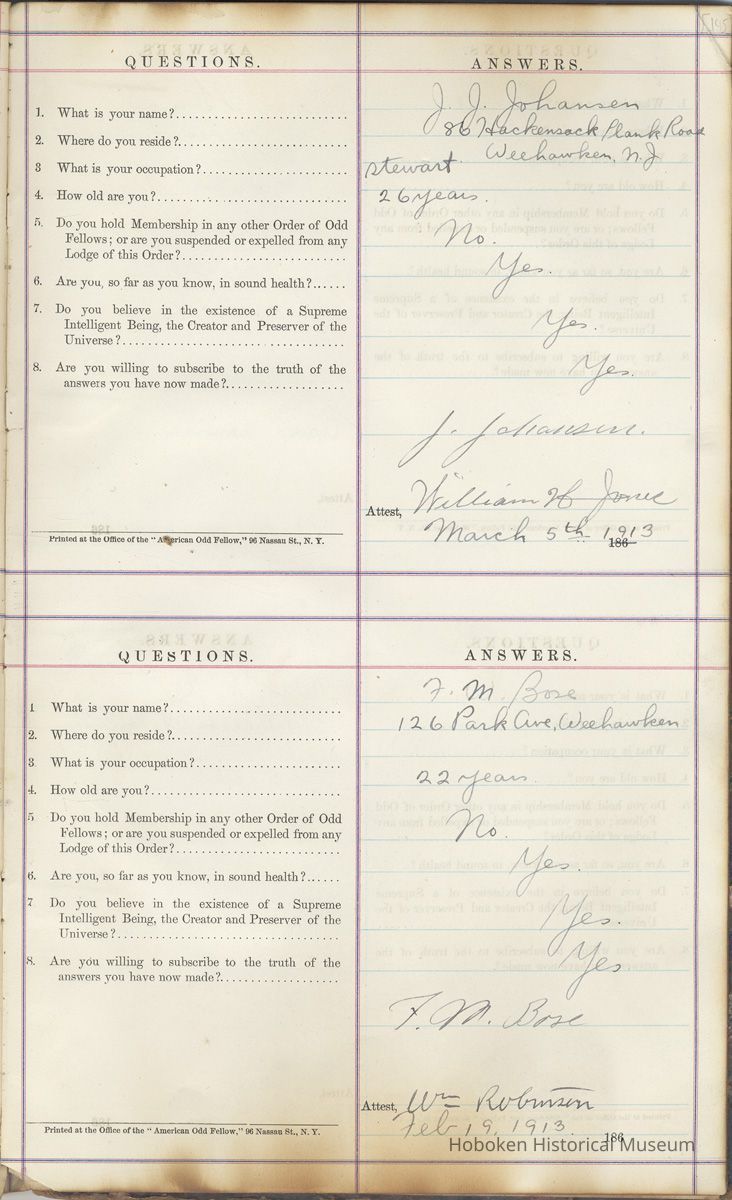 [195]
QUESTIONS. ANSWERS.
1. What is your name?.............................. J. J. Johansen
2. Where do you reside?.............................. 86 Hackensack Plank Road
Weehawken, N.J
3 What is your occupation?......................... stewart.
4. How old are you?................................. 26 years.
5. Do you hold Membership in any other Order of Odd
Fellows; or are you suspended or expelled from any
Lodge of this Order?............................ No.
6. Are you, so far as you know, in sound health?...... Yes.
7. Do you believe in the existence of a Supreme
Intelligent Being, the Creator and Preserver of the
Universe?....................................... Yes.
8. Are you willing to subscribe to the truth of the
answers you have now made?..................... Yes.
J. Johansen.
Attest, William H Jones
March 5th 1913
186
Printed at the Office of the "American Odd Fellow," 96 Nassau St., N. Y.
QUESTIONS. ANSWERS.
1 What is your name?.............................. F. M. Bose
2. Where do you reside?.............................. 126 Park Ave, Weehawken
3. What is your occupation?.........................
4. How old are you?................................. 22 years.
5 Do you hold Membership in any other Order of Odd
Fellows; or are you suspended or expelled from any
Lodge of this Order?............................ No.
6. Are you, so far as you know, in sound health?...... Yes.
7 Do you believe in the existence of a Supreme
Intelligent Being, the Creator and Preserver of the
Universe?....................................... Yes.
8. Are you willing to subscribe to the truth of the
answers you have now made?..................... Yes
F. M. Bose
Attest, Wm Robinson
Feb 19, 1913.
186
Printed at the Office of the "American Odd Fellow," 96 Nassau St., N. Y.
Hoboken Historical Museum